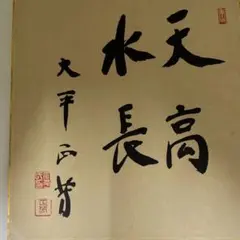 天高
水長
大平正芳